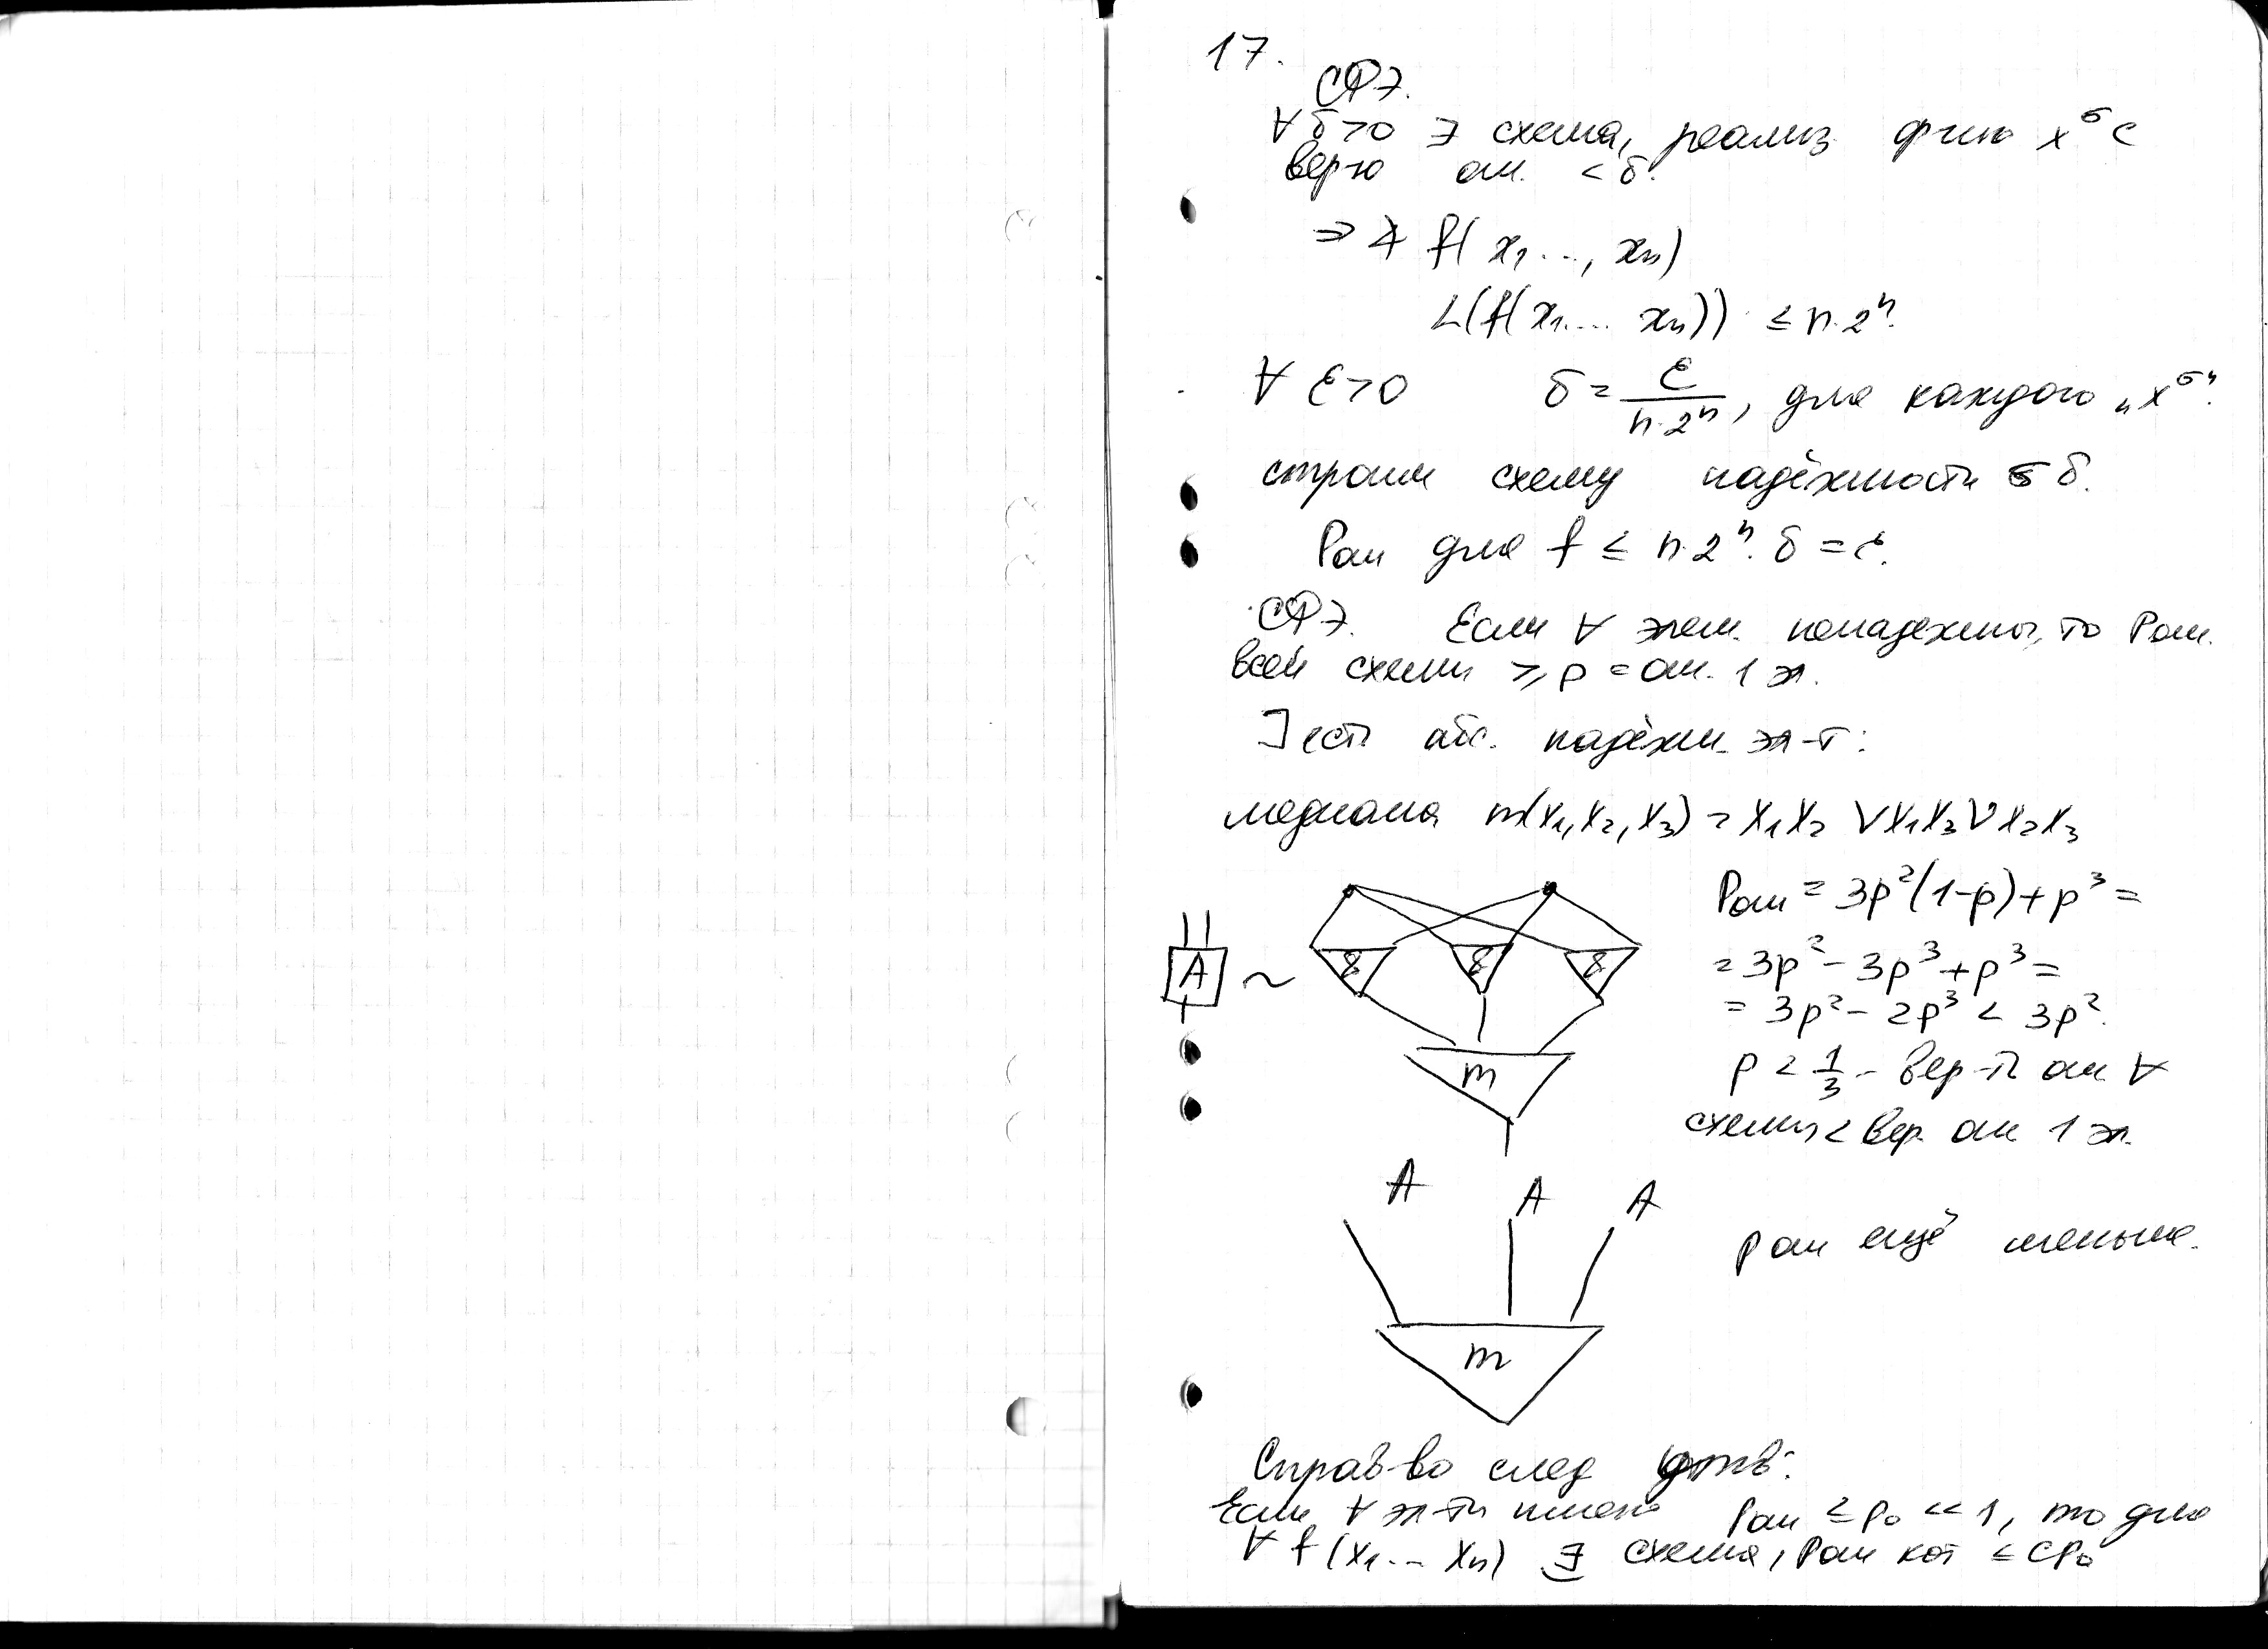 17.
СФЭ.
∀ δ>0 ∃ схема, реализ ф-цию x^σ с
вер-ю ош. < δ.
⇒ ∀ f(x₁..., xₙ)
L(f(x₁.... xₙ)) ≤ n·2ⁿ.
∀ ε>0 δ = ε/(n·2ⁿ), для каждого „x^σ"
строим схему надёжности δ.
Pош для f ≤ n·2ⁿ·δ = ε.
СФЭ. Если ∀ элем. ненадежны, то Pош.
всей схемы ≥ p = ош. 1 эл.
] есть абс. надёжн. эл-т:
медиана m(x₁, x₂, x₃) = x₁x₂ ∨ x₁x₃ ∨ x₂x₃
A ~ & & & m
Pош = 3p²(1-p) + p³ =
= 3p² - 3p³ + p³ =
= 3p² - 2p³ < 3p².
p < 1/3 - вер-ть ош ∀
схемы < вер. ош 1 эл.
A A A
m
Pош ещё меньше.
Справ-во след утв:
Если ∀ эл-ты имеют Pош ≤ p₀ << 1, то для
∀ f(x₁... xₙ) ∃ схема, Pош кот ≤ cp₀